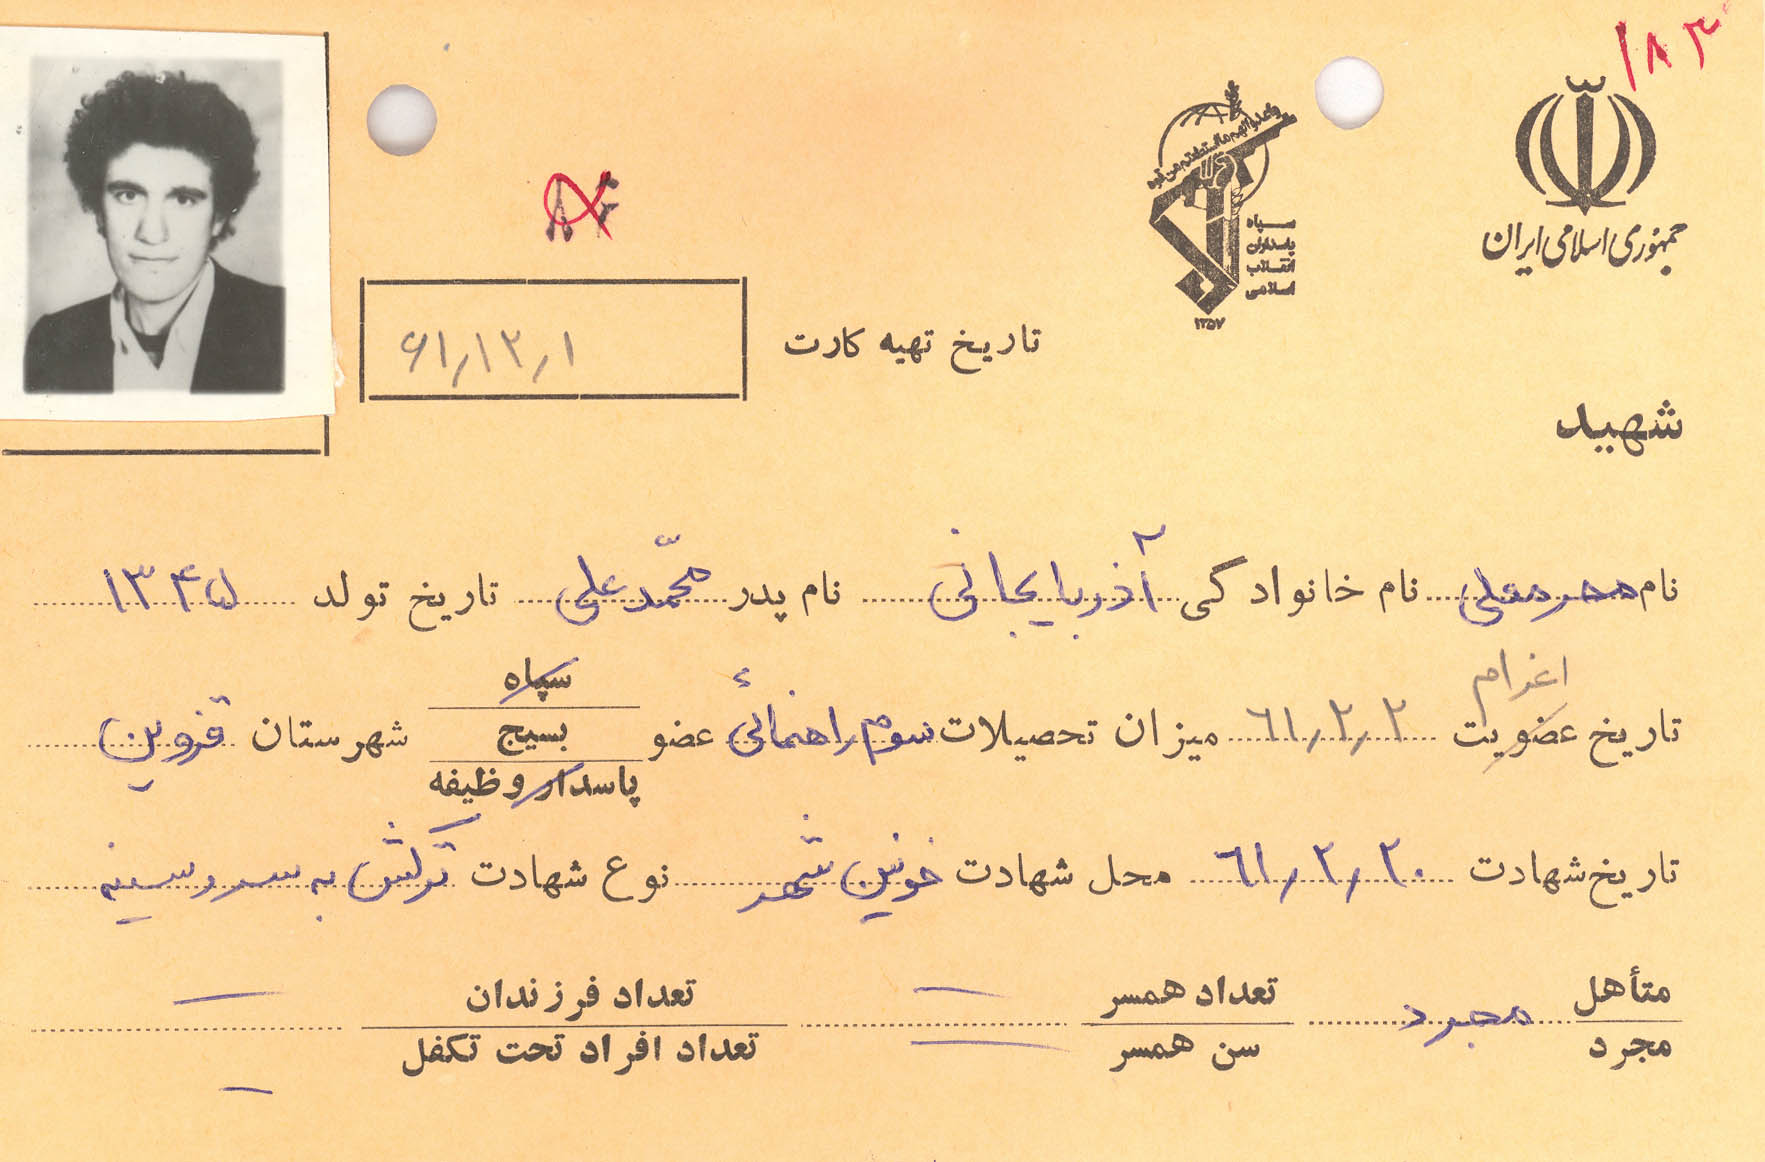 ۱۸۳
جمهوری اسلامی ایران
سپاه
پاسداران
انقلاب
اسلامی
۱۳۵۷
تاریخ تهیه کارت ۶۱٫۱۲٫۱
شهید
نام محرمعلی نام خانوادگی آذربایجانی نام پدر محمّد علی تاریخ تولد ۱۳۴۵
اغرام
سپاه
تاریخ عضویت ۶۱٫۲٫۲ میزان تحصیلات سوم راهنمائی عضو بسیج شهرستان قزوین
پاسدار وظیفه
تاریخ شهادت ۶۱٫۲٫۲۰ محل شهادت خونین شهر نوع شهادت ترکش به سر و سینه
متأهل مجرد تعداد همسر — تعداد فرزندان —
مجرد سن همسر — تعداد افراد تحت تکفل —